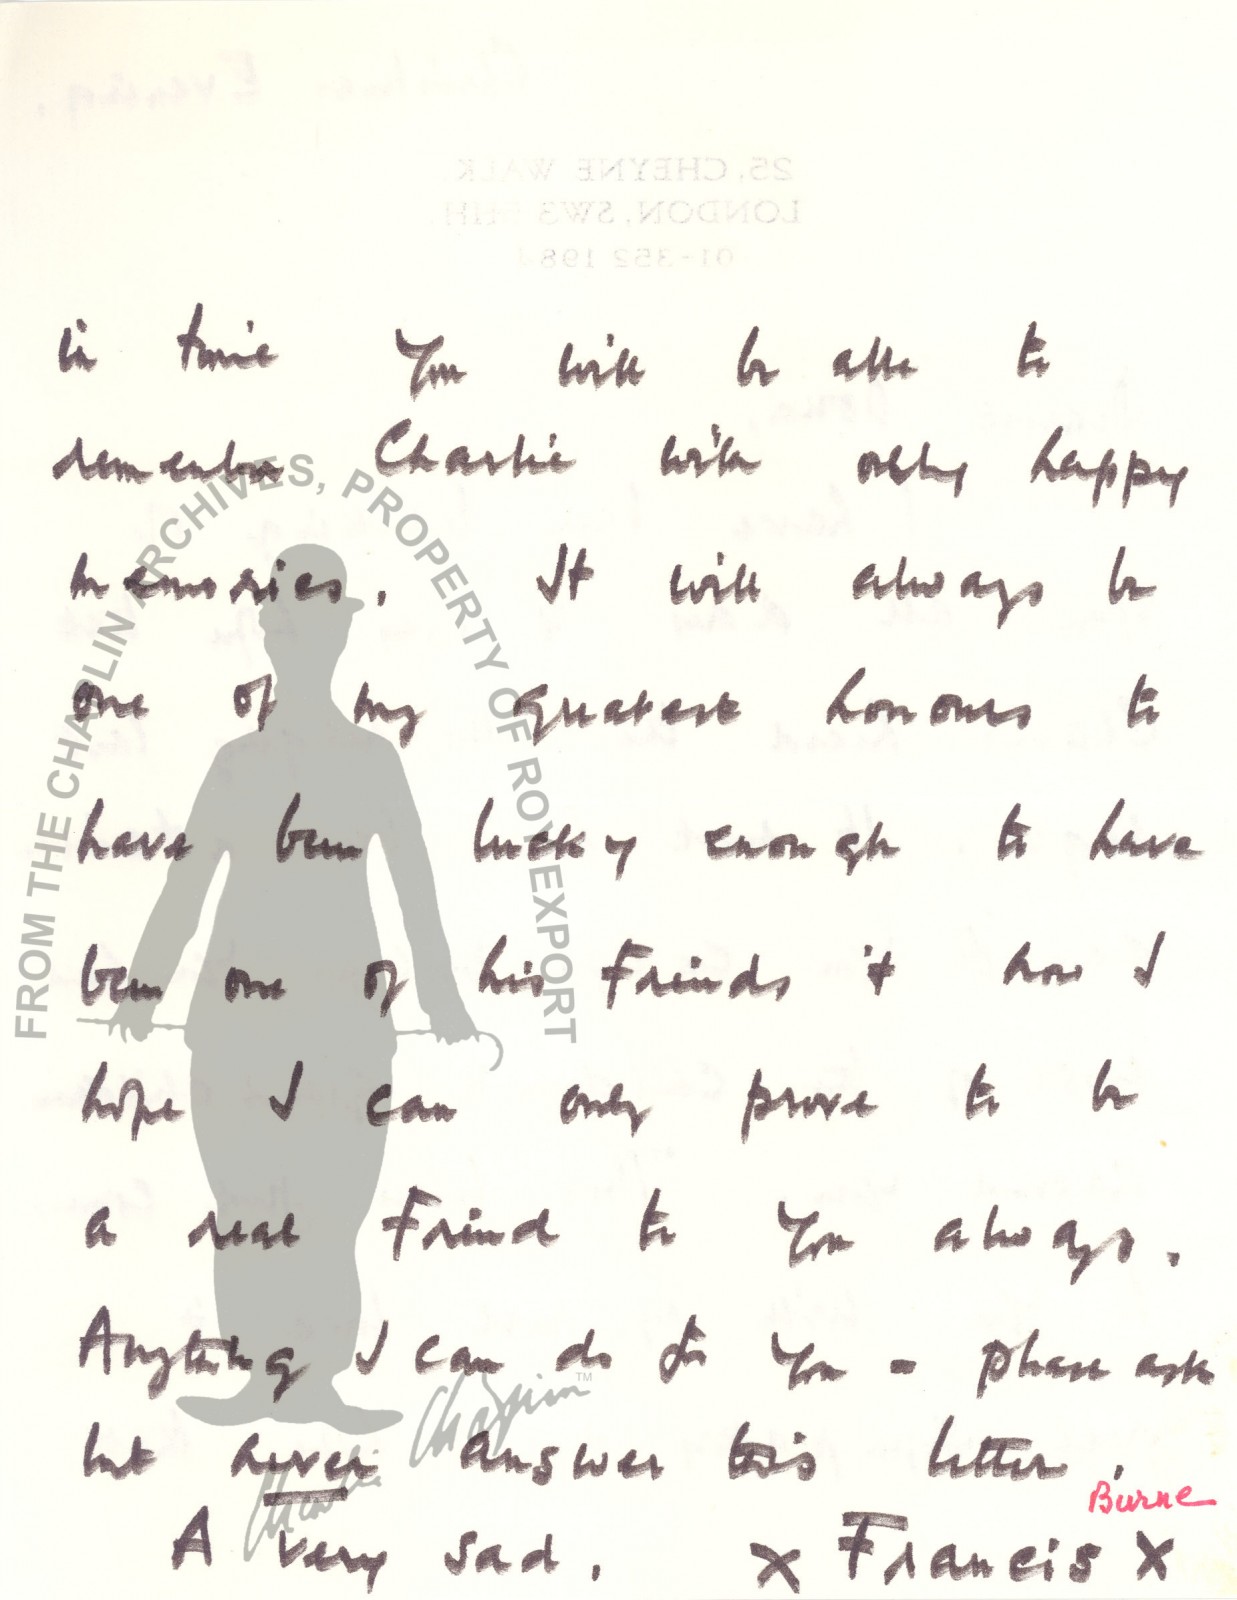 25, CHEYNE WALK,
LONDON, SW3 5HH.
01-352 198
in time you will be able to
remember Charlie with only happy
memories. It will always be
one of my greatest honours to
have been lucky enough to have
been one of his Friends & how I
hope I can only prove to be
a real Friend to You always.
Anything I can do for You - please ask
but never answer this letter.
Burne
A very sad, x Francis x
FROM THE CHAPLIN ARCHIVES, PROPERTY OF ROY EXPORT
Charlie Chaplin TM